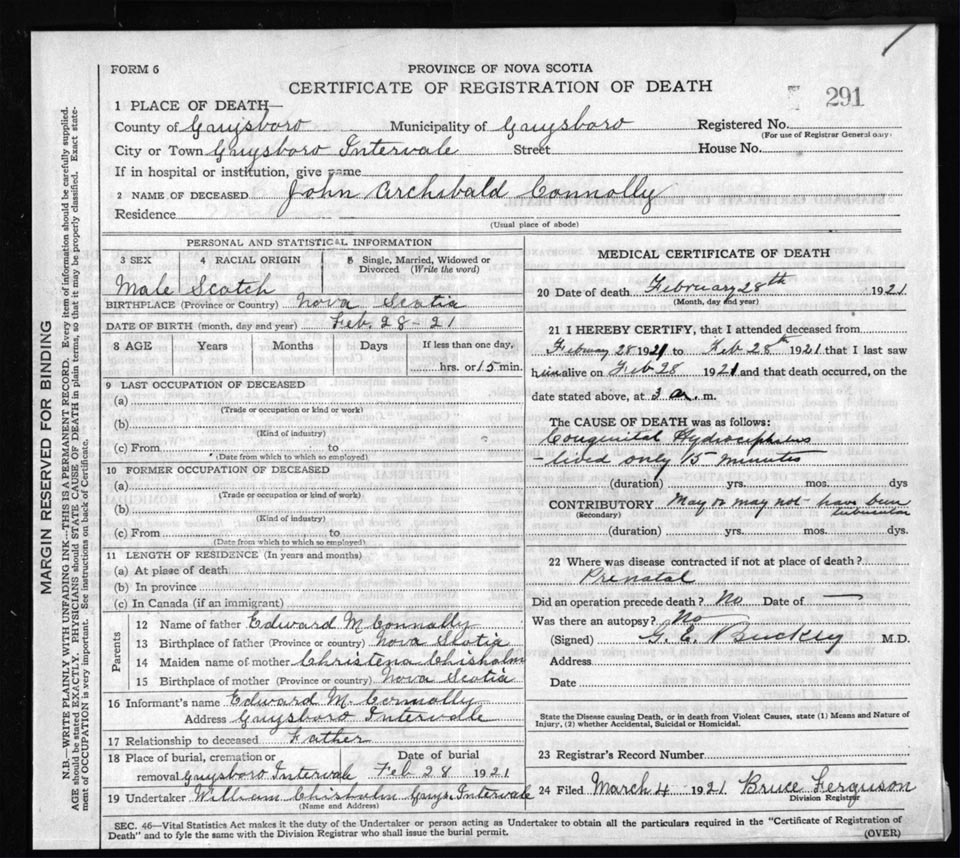 FORM 6
PROVINCE OF NOVA SCOTIA
CERTIFICATE OF REGISTRATION OF DEATH
291
1 PLACE OF DEATH—
County of Guysboro Municipality of Guysboro Registered No.
(For use of Registrar General only)
City or Town Guysboro Intervale Street House No.
If in hospital or institution, give name
2 NAME OF DECEASED John Archibald Connolly
Residence
(Usual place of abode)
PERSONAL AND STATISTICAL INFORMATION
3 SEX 4 RACIAL ORIGIN 5 Single, Married, Widowed or Divorced (Write the word)
Male Scotch
BIRTHPLACE (Province or Country) Nova Scotia
DATE OF BIRTH (month, day and year) Feb. 28 - 21
8 AGE Years Months Days If less than one day,
hrs. or 15 min.
9 LAST OCCUPATION OF DECEASED
(a)
(Trade or occupation or kind or work)
(b)
(Kind of industry)
(c) From to
(Date from which to which so employed)
10 FORMER OCCUPATION OF DECEASED
(a)
(Trade or occupation or kind or work)
(b)
(Kind of industry)
(c) From to
(Date from which to which so employed)
11 LENGTH OF RESIDENCE (In years and months)
(a) At place of death
(b) In province
(c) In Canada (if an immigrant)
Parents
12 Name of father Edward M Connolly
13 Birthplace of father (Province or country) Nova Scotia
14 Maiden name of mother Christena Chisholm
15 Birthplace of mother (Province or country) Nova Scotia
16 Informant's name Edward M. Connolly
Address Guysboro Intervale
17 Relationship to deceased Father
18 Place of burial, cremation or Date of burial
removal Guysboro Intervale Feb 28 1921
19 Undertaker William Chisholm Guys. Intervale
(Name and Address)
MEDICAL CERTIFICATE OF DEATH
20 Date of death February 28th 1921
(Month, day and year)
21 I HEREBY CERTIFY, that I attended deceased from
February 28 1921 to Feb 28th 1921 that I last saw
him alive on Feb 28 1921 and that death occurred, on the
date stated above, at 3 a. m.
The CAUSE OF DEATH was as follows:
Congenital Hydrocephalus
- lived only 15 minutes
(duration) yrs. mos. dys
CONTRIBUTORY May or may not have been
(Secondary)
(duration) yrs. mos. dys.
22 Where was disease contracted if not at place of death?
Prenatal
Did an operation precede death? No Date of —
Was there an autopsy? No
(Signed) G. E. Buckley M.D.
Address
Date
State the Disease causing Death, or in death from Violent Causes, state (1) Means and Nature of
Injury, (2) whether Accidental, Suicidal or Homicidal.
23 Registrar's Record Number
24 Filed March 4 1921 Bruce Ferguson
Division Registrar
SEC. 46—Vital Statistics Act makes it the duty of the Undertaker or person acting as Undertaker to obtain all the particulars required in the "Certificate of Registration of
Death" and to fyle the same with the Division Registrar who shall issue the burial permit.
(OVER)
MARGIN RESERVED FOR BINDING
N.B.—WRITE PLAINLY WITH UNFADING INK—THIS IS A PERMANENT RECORD. Every item of information should be carefully supplied.
AGE should be stated EXACTLY. PHYSICIANS should STATE CAUSE OF DEATH in plain terms, so that it may be properly classified. Exact state-
ment of OCCUPATION is very important. See instructions on back of Certificate.